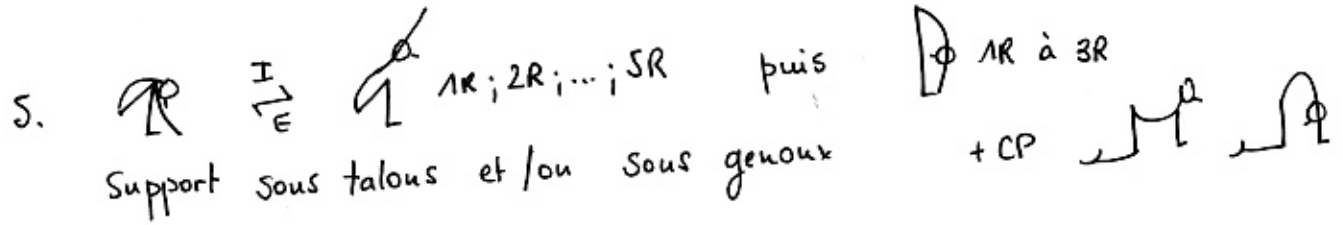 5. I ⇌ E 1R ; 2R ; ... ; 5R puis 1R à 3R
Support sous talons et/ou sous genoux + CP